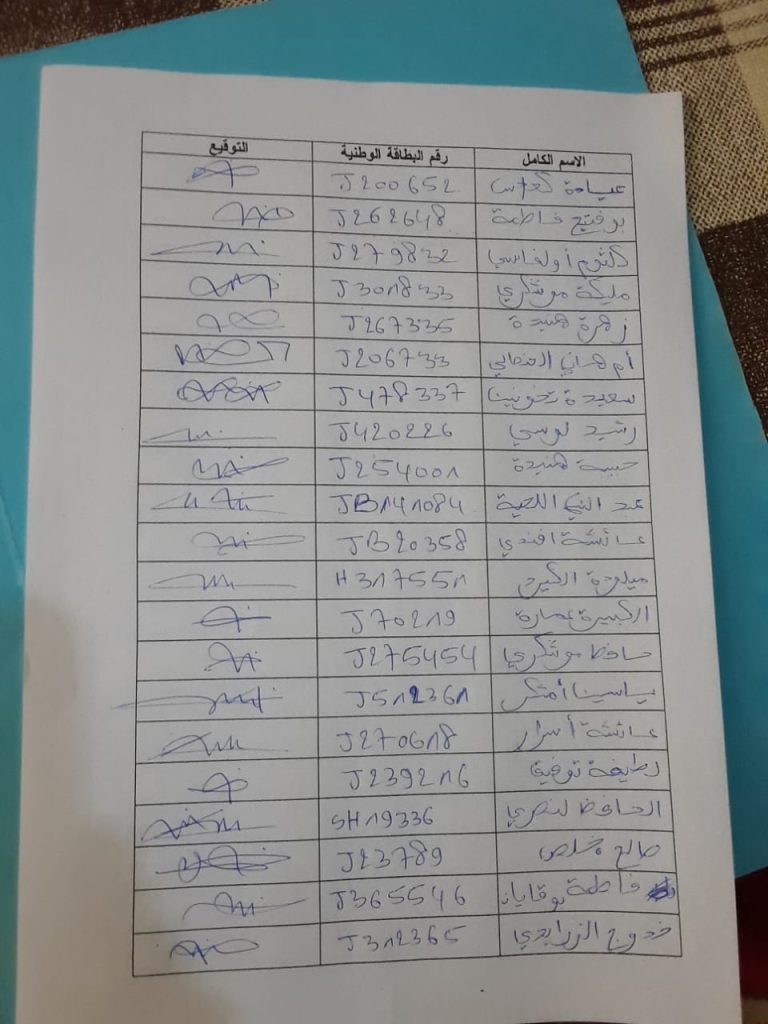 الاسم الكامل رقم البطاقة الوطنية التوقيع
عيادة J200652
بوفتيح فاطمة J262648
كلثوم أولفاسي J279832
مليكة موشكري J301833
زهرة هنيدة J267335
أم هاني J206733
سعيدة J478337
رشيد لوسي J420226
حبيبة هنيدة J254001
عبد النبي اللحية JB141084
عائشة افندي JB20358
ميلودة الكيرح H317551
الكبيرة عمارة J70219
حافظ موشكري J275454
ياسين أمتكر J512361
عائشة أسرار J270618
لطيفة توفيق J239216
الحافظ لنصري SH19336
صالح مخلص J23789
فاطمة بوقايا J365546
خدوج الزرايدي J312365